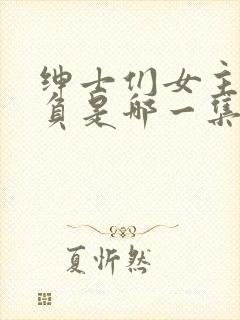 绅士们女主
负是哪一集
夏忻然